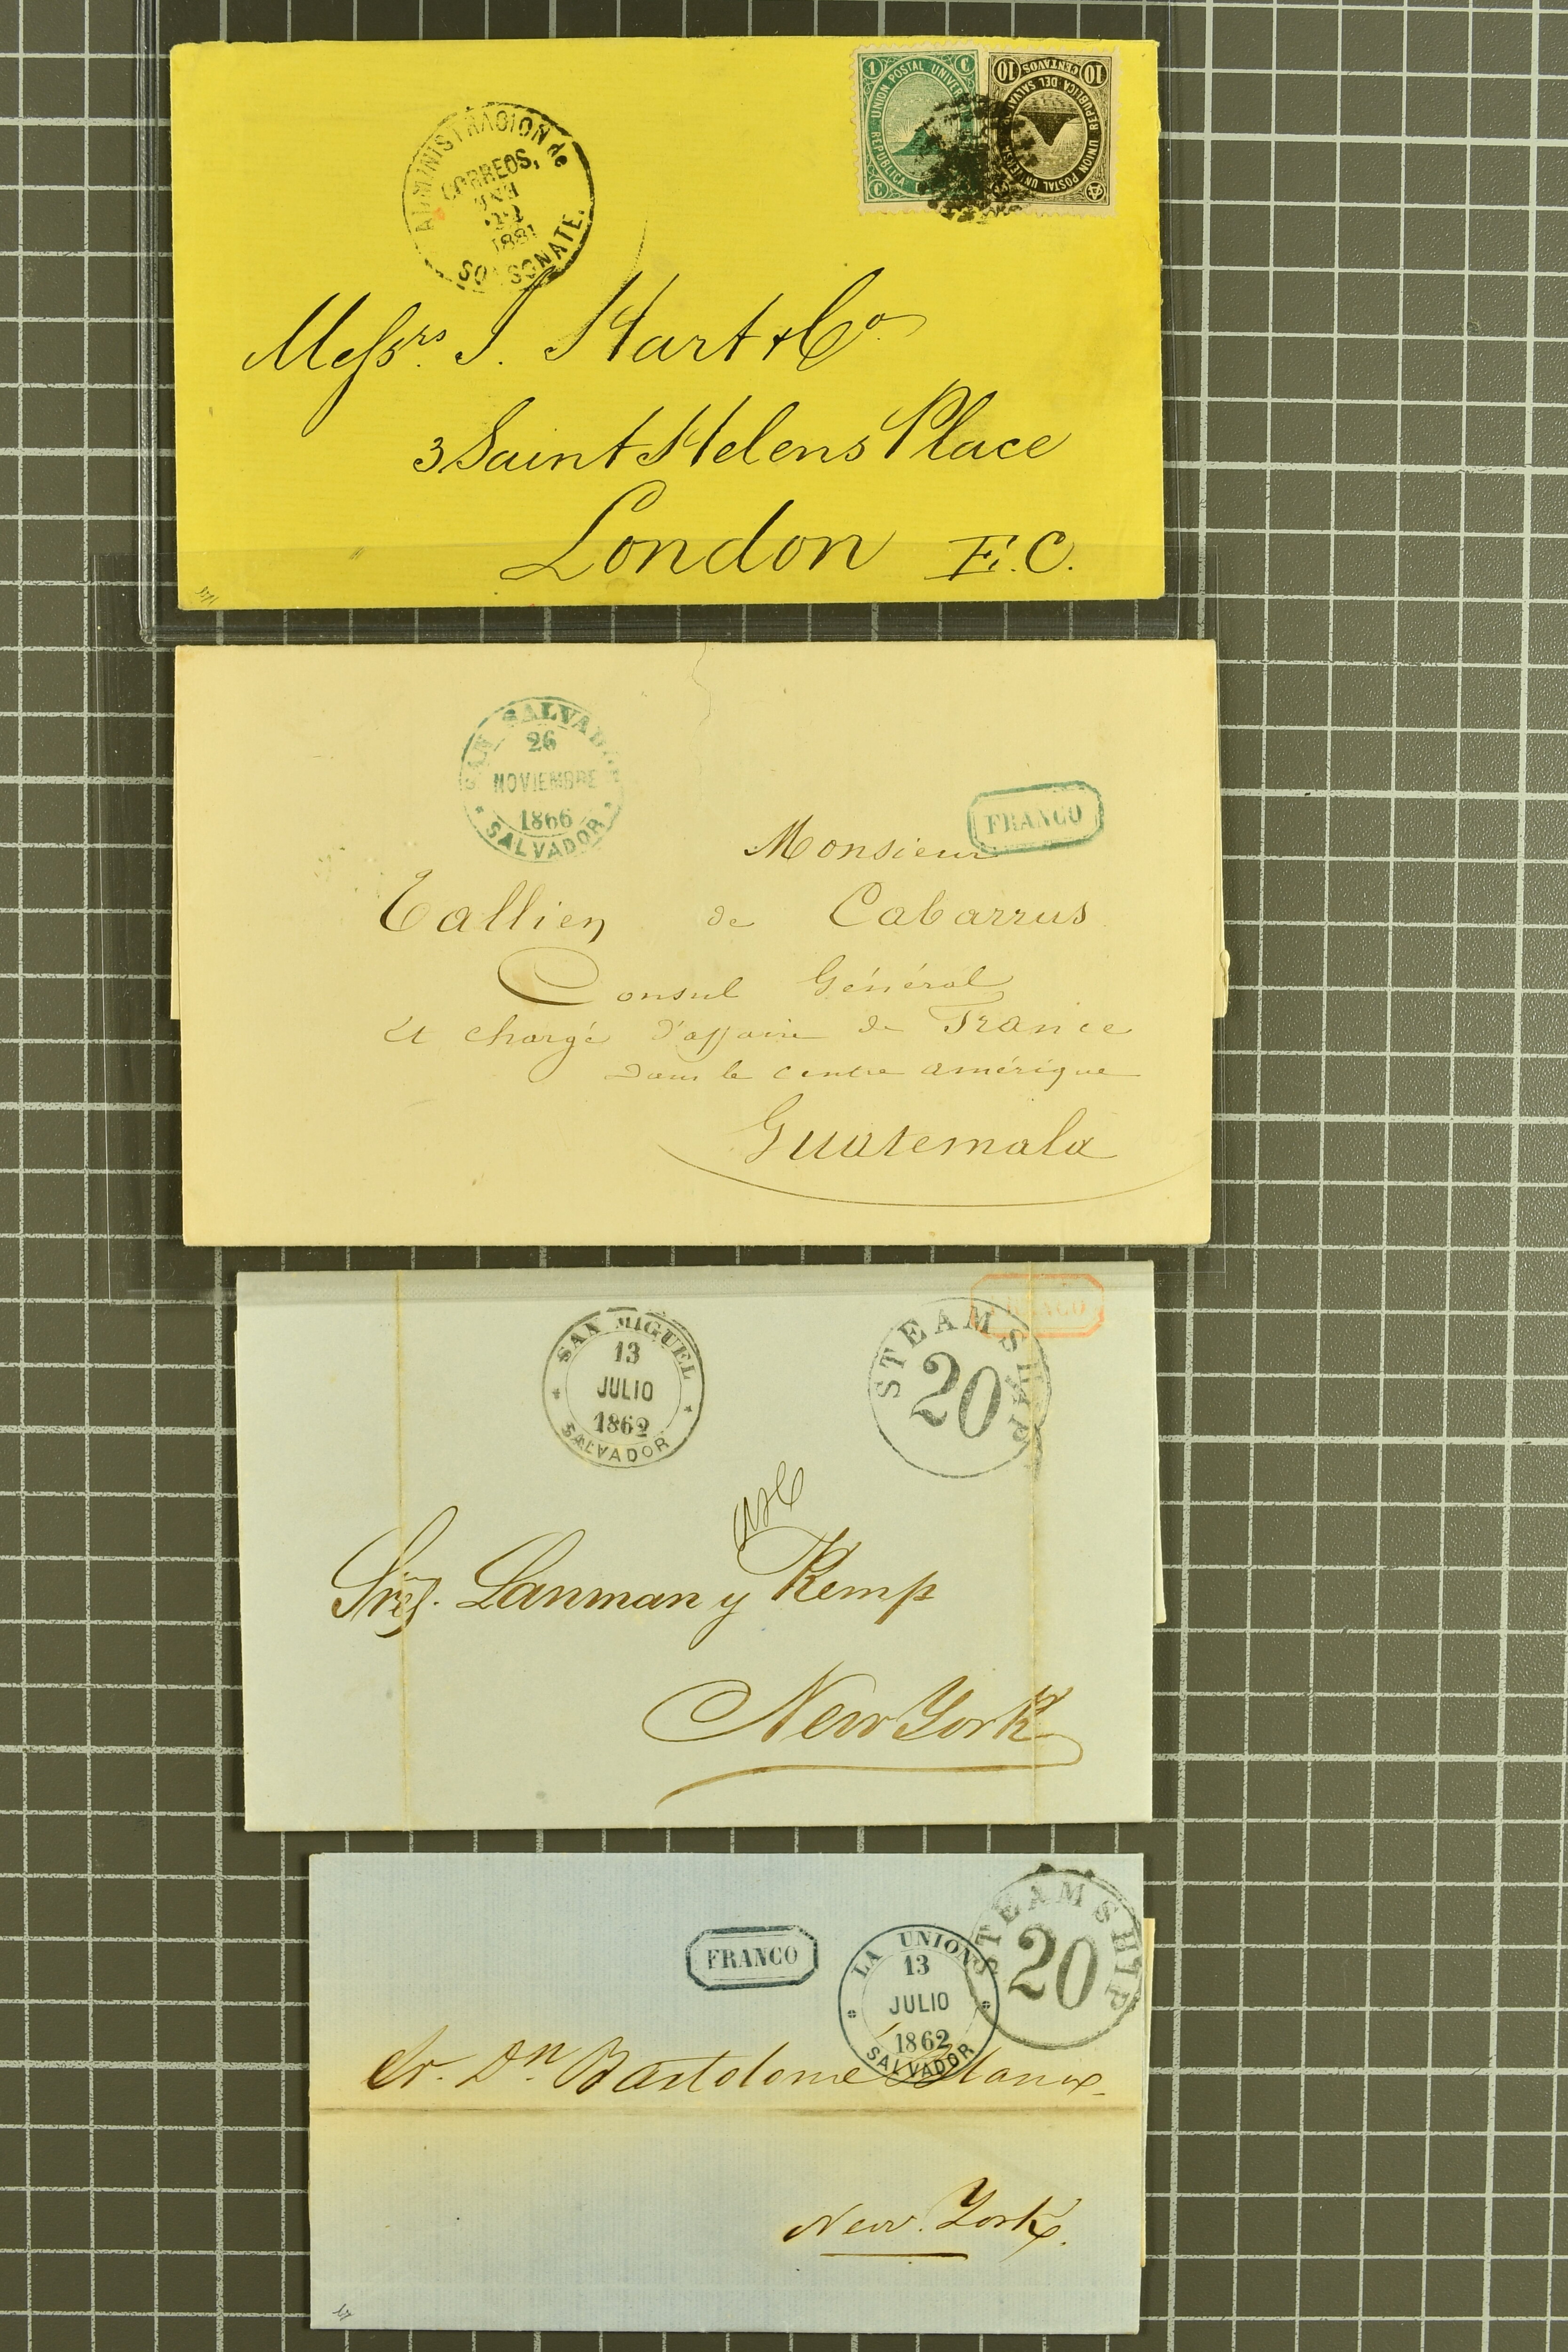 ADMINISTRACION de
CORREOS,
22
1881
SONSONATE.
1 C
UNION POSTAL UNIVERSAL
REPUBLICA
C
10 CENTAVOS 10
REPUBLICA DEL SALVADOR
UNION POSTAL UNIVERSAL
Messrs. J. Hart & Co.
3 Saint Helens Place
London E.C.
SAN SALVADOR
26
NOVIEMBRE
1866
SALVADOR
FRANCO
Monsieur
Tallien de Cabarrus
Consul Général
et chargé d'affaire de France
dans le centre amérique
Guatemala
FRANCO
SAN MIGUEL
13
JULIO
1862
SALVADOR
STEAMSHIP
20
Sres. Lanman y Kemp
New York
FRANCO
LA UNION
13
JULIO
1862
SALVADOR
STEAMSHIP
20
Sr. Dn. Bartolome Blanco
New York.